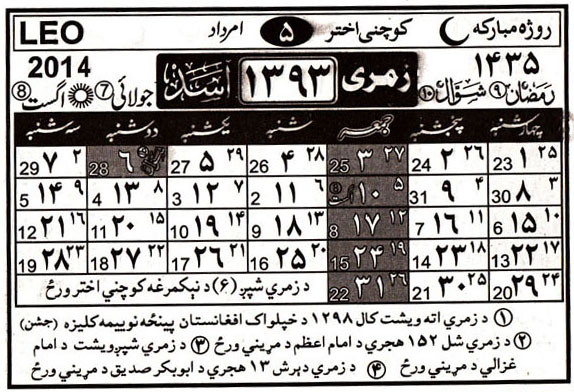 روژه مبارکه کوچنی اختر ۵ امرداد LEO
۱۴۳۵ زمری ۱۳۹۳ اسد 2014
رمضان ۹ شوال ۱۰ جولائی 7 اگست 8
چهارشنبه پنجشنبه جمعه شنبه یکشنبه دوشنبه سه شنبه
۲۵ ۱ 23 ۲۶ ۲ 24 ۲۷ ۳ 25 ۲۸ ۴ 26 ۲۹ ۵ 27 ۶ 28 ۲ ۷ 29
۳ ۸ 30 ۴ ۹ 31 ۵ ۱۰ اگست ۶ ۱۱ 2 ۷ ۱۲ 3 ۸ ۱۳ 4 ۹ ۱۴ 5
۱۰ ۱۵ 6 ۱۱ ۱۶ 7 ۱۲ ۱۷ 8 ۱۳ ۱۸ 9 ۱۴ ۱۹ 10 ۱۵ ۲۰ 11 ۱۶ ۲۱ 12
۱۷ ۲۲ 13 ۱۸ ۲۳ 14 ۱۹ ۲۴ 15 ۲۰ ۲۵ 16 ۲۱ ۲۶ 17 ۲۲ ۲۷ 18 ۲۳ ۲۸ 19
۲۴ ۲۹ 20 ۲۵ ۳۰ 21 ۲۶ ۳۱ 22 د زمري شپږ (۶) د نېکمرغه کوچني اختر ورځ
۱ د زمري اته ویشت کال ۱۲۹۸ د خپلواک افغانستان پینځه نوییمه کلیزه (جشن)
۲ د زمري شل ۱۵۲ هجري د امام اعظم د مړیني ورځ ۳ د زمري شپږویشت د امام
غزالي د مړیني ورځ ۴ د زمري دېرش ۱۳ هجري د ابوبکر صدیق د مړیني ورځ